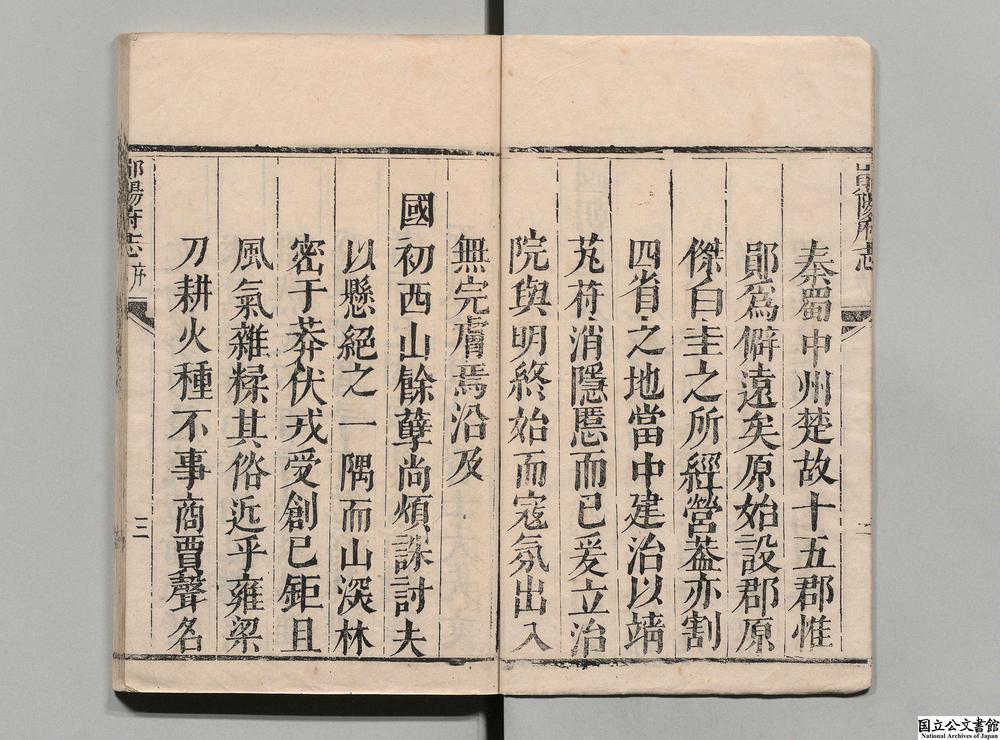 鄖陽府志
秦蜀中州楚故十五郡惟
鄖爲僻遠矣原始設郡原
傑白圭之所經營葢亦割
四省之地當中建治以靖
芄苻消隱慝而已爰立治
院與明終始而寇氛出入
無完膚焉沿及
國初西山餘孽尚煩誅討夫
以懸絕之一隅而山深林
密于莽伏戎受創已鉅且
風氣雜糅其俗近乎雍梁
刀耕火種不事商賈聲名
鄖陽府志 序 三
国立公文書館
National Archives of Japan